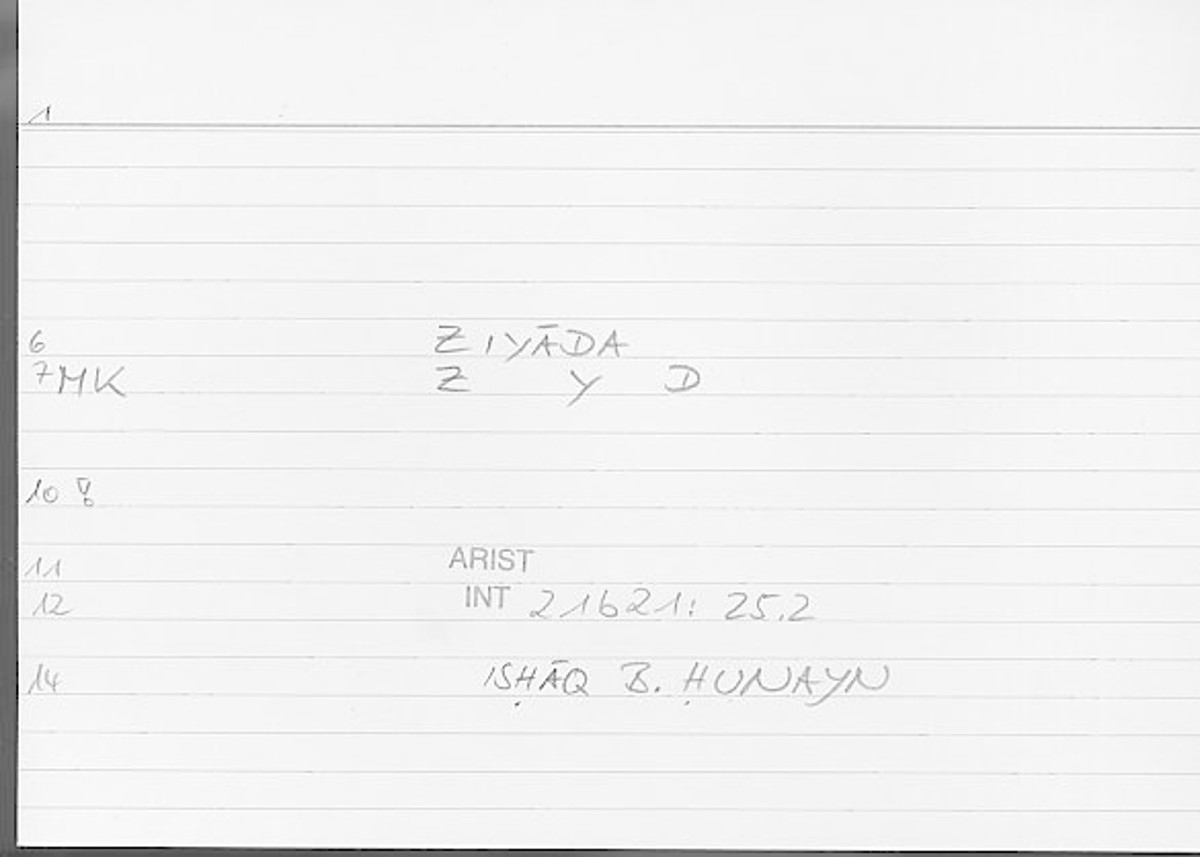 1
6 ZIYĀDA
7 MK Z Y D
10
11 ARIST
12 INT 21b21: 25.2
14 ISḤĀQ B. ḤUNAYN